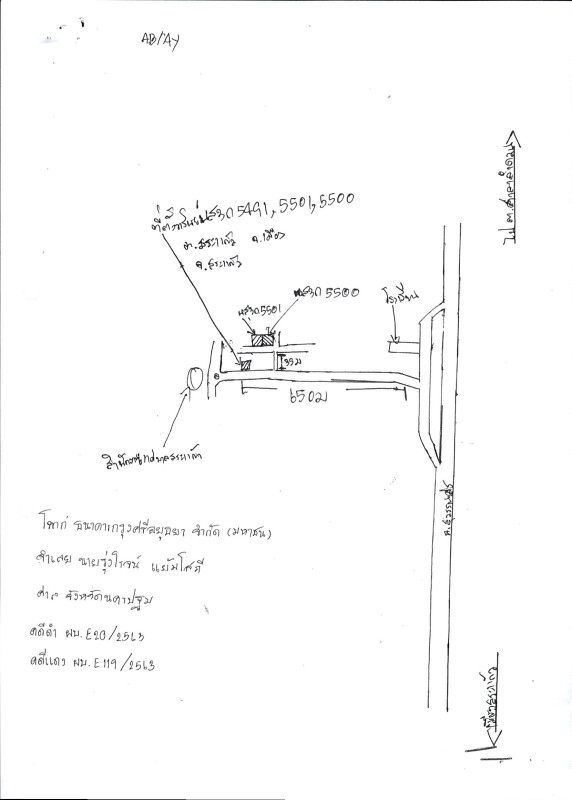 AB/AY
ที่ตั้งทรัพย์ นส3ก 5491, 5501, 5500
ต.สระแก้ว อ.เมือง
จ.สระแก้ว
นส3ก 5501
นส3ก 5500
โรงเรียน
650ม
ถ.สุวรรณศร
ไป ต.ศาลาลำดวน
เมืองสระแก้ว
โจทก์ ธนาคารกรุงศรีอยุธยา จำกัด (มหาชน)
จำเลย นายรุ่งโรจน์ แย้มโสภี
ศาล จังหวัดนครปฐม
คดีดำ ผบ.E20/2563
คดีแดง ผบ.E119/2563